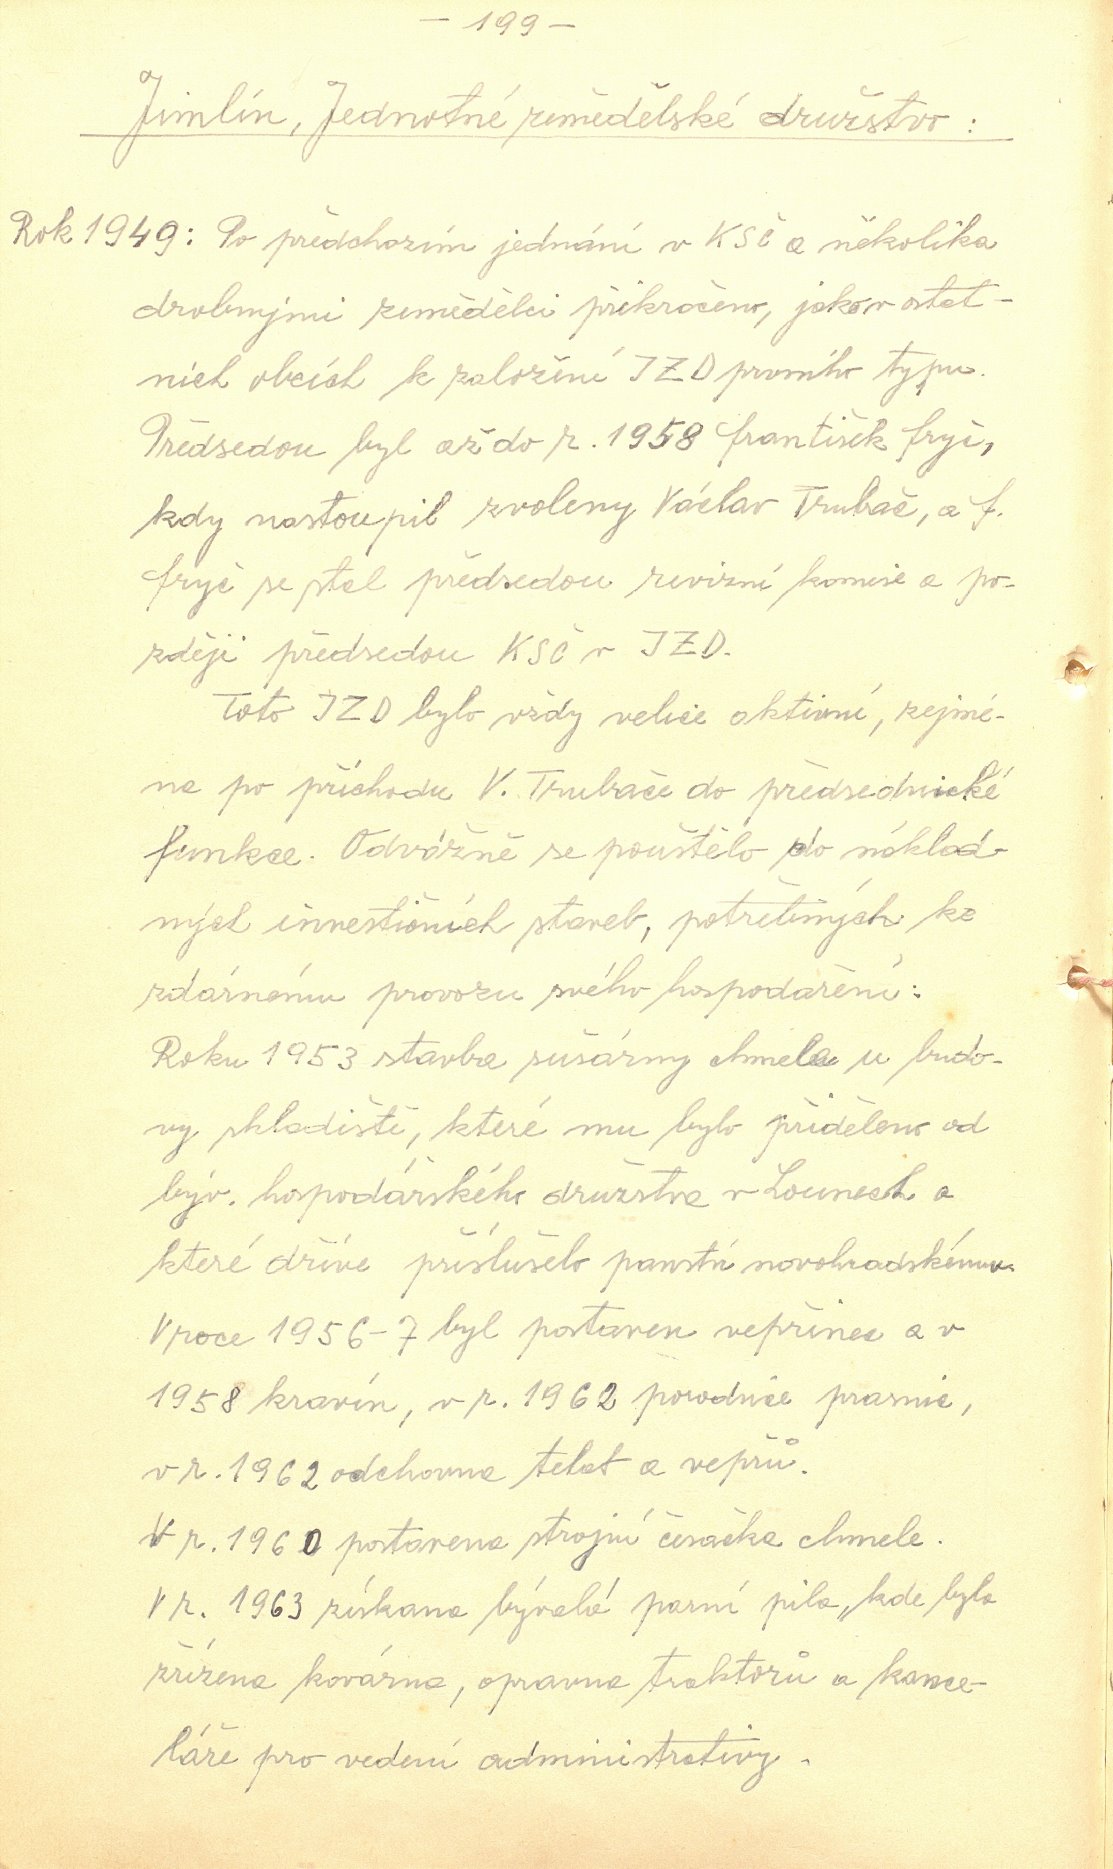 - 199 -
Jimlín, Jednotné zemědělské družstvo :
Rok 1949: Po předchozím jednání v KSČ a několika
drobnými zemědělci přikročeno, jako v ostat-
ních obcích k založení JZD prvního typu.
Předsedou byl až do r. 1958 František Fryč,
kdy nastoupil zvolený Václav Trubač, a F.
Fryč se stal předsedou revizní komise a po-
zději předsedou KSČ v JZD.
Toto JZD bylo vždy velice aktivní, zejmé-
na po příchodu V. Trubače do předsednické
funkce. Odvážně se pouštělo do náklad-
ných investičních staveb, potřebných ke
zdárnému provozu svého hospodaření:
Roku 1953 stavba sušárny chmele u budo-
vy skladiště, které mu bylo přiděleno od
býv. hospodářského družstva v Lounech a
které dříve příslušelo panství novohradskému.
V roce 1956-7 byl postaven vepřinec a v
1958 kravín, v r. 1962 porodnice prasnic,
v r. 1962 odchovna telat a vepřů.
V r. 1960 postavena strojní česačka chmele.
V r. 1963 získana bývalá parní pila, kde byla
zřízena kovárna, opravna traktorů a kance-
láře pro vedení administrativy.